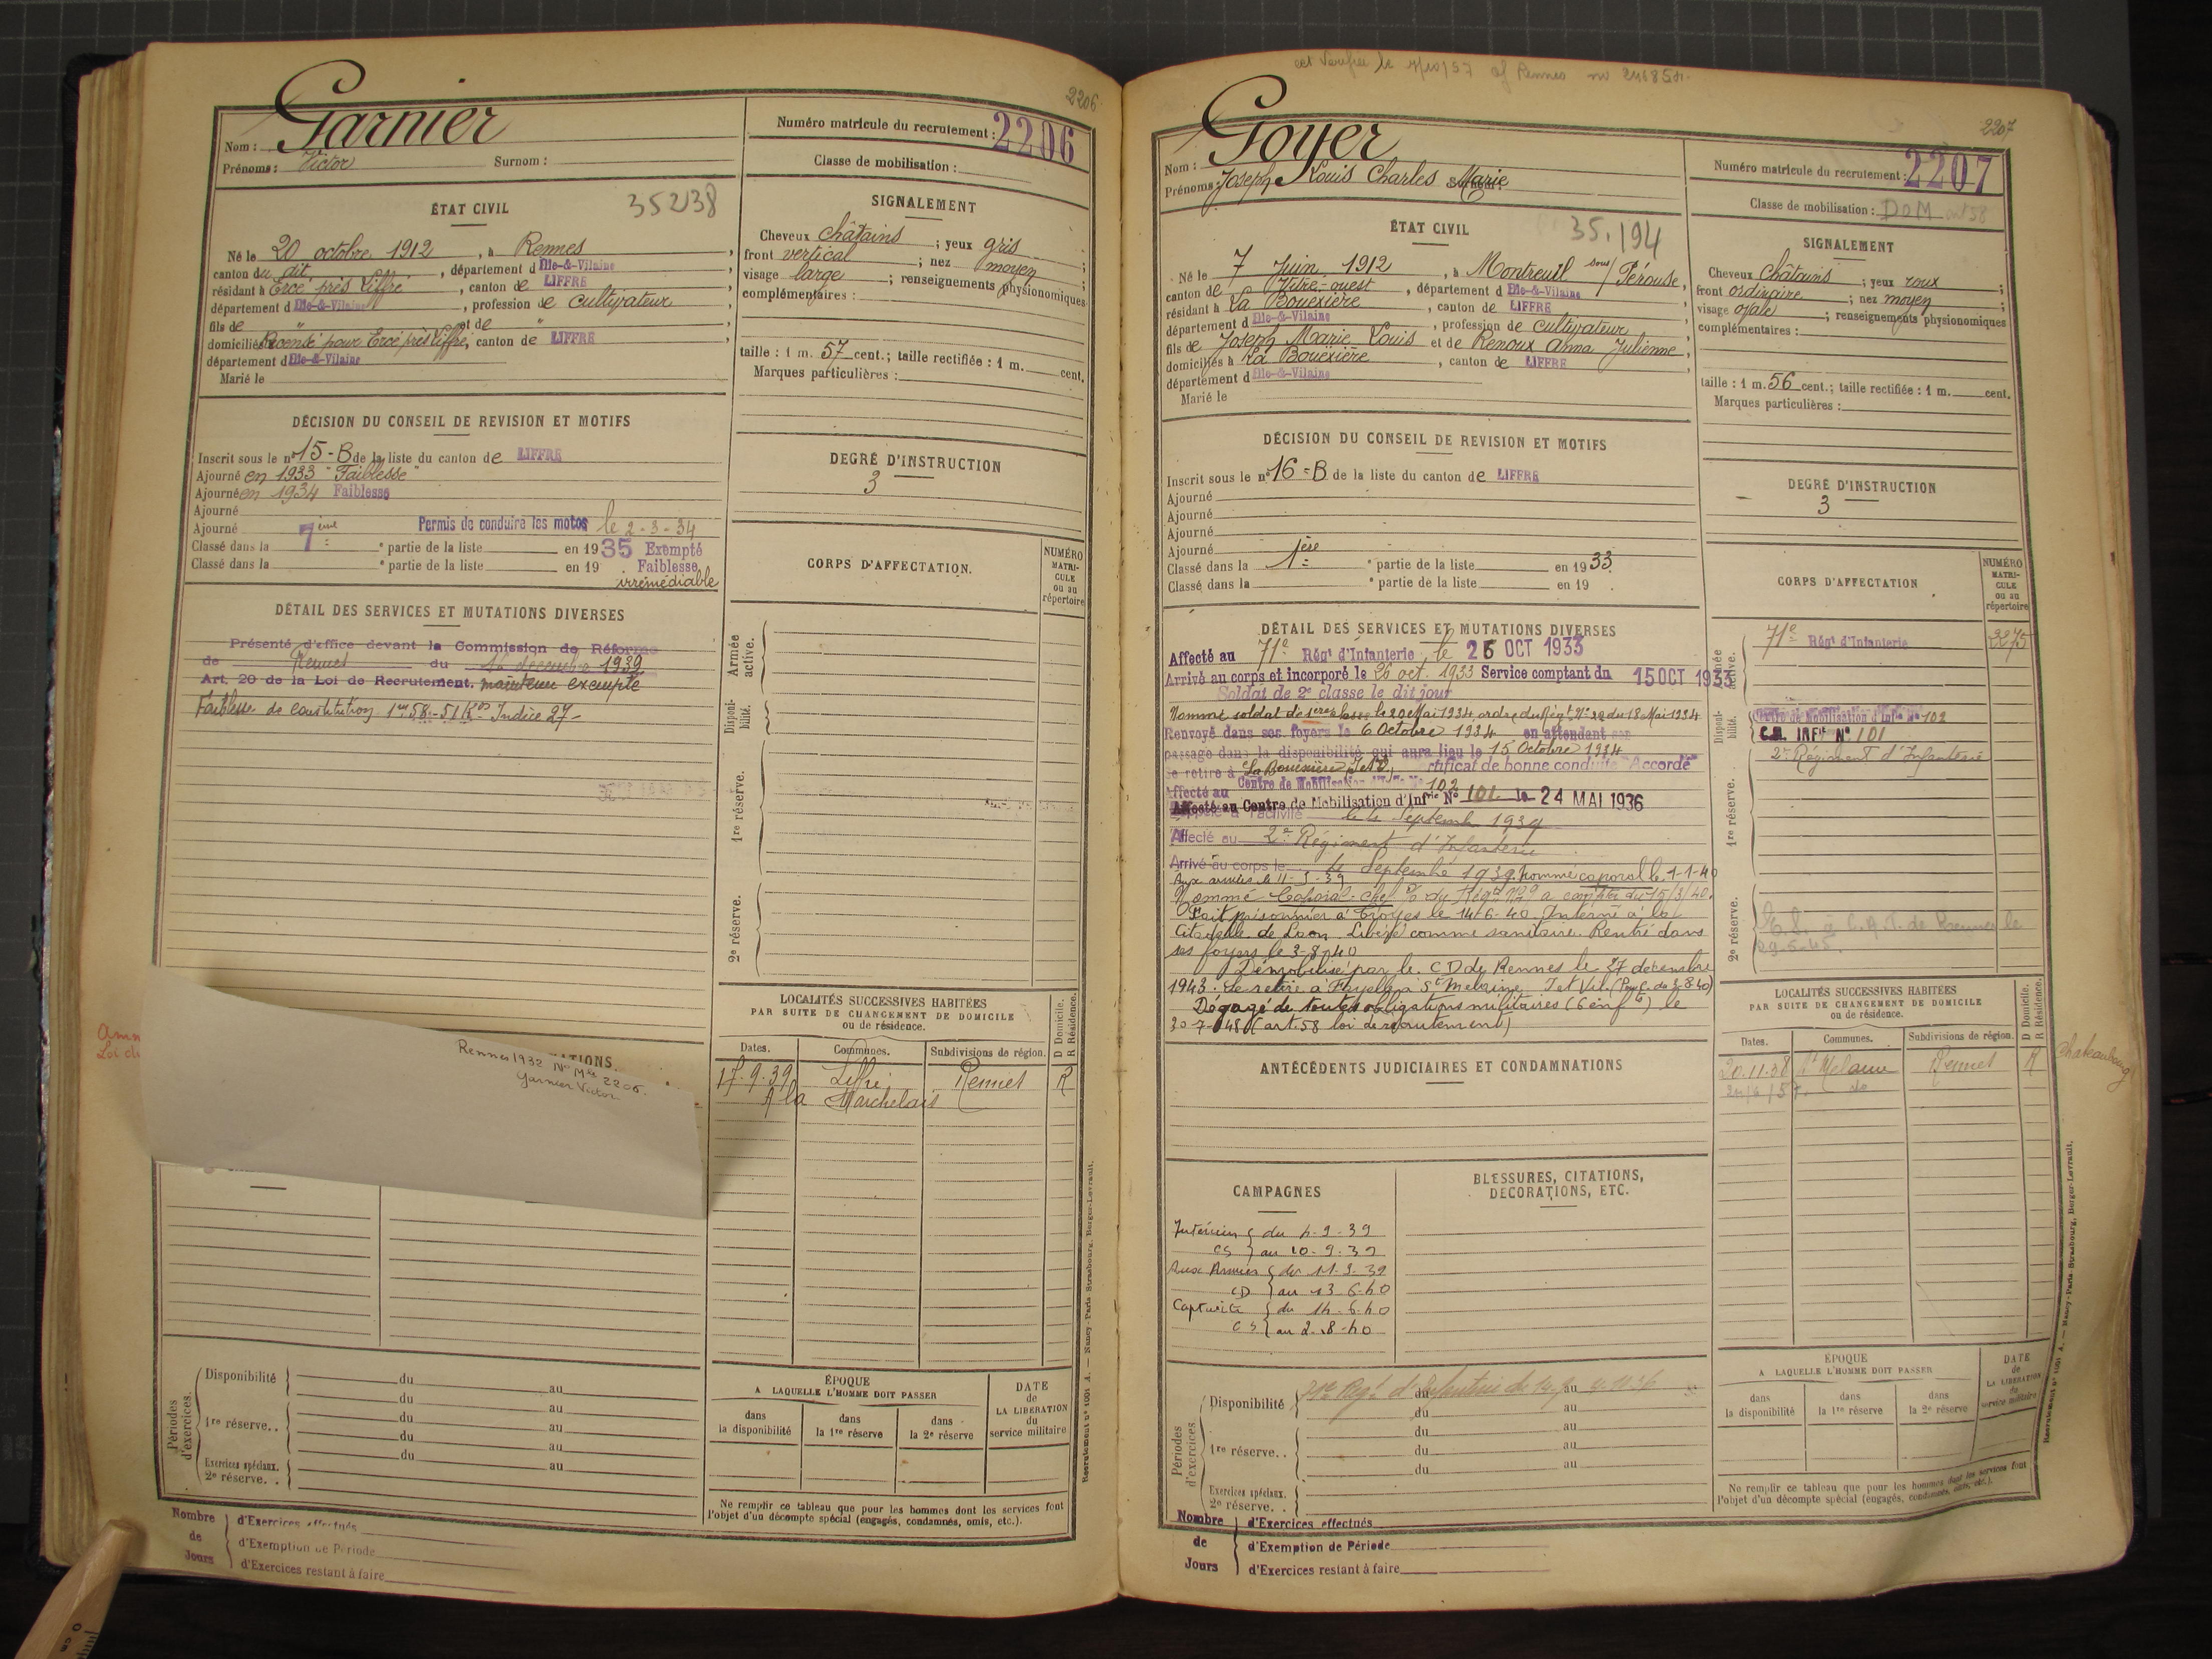 2206
Garnier
Nom :
Prénoms : Victor Surnom :
Numéro matricule du recrutement : 2206
Classe de mobilisation :
ÉTAT CIVIL 35238
Né le 20 octobre 1912, à Rennes,
canton du dit, département d Ille-&-Vilaine
résidant à Ercé près Liffré, canton de LIFFRE
département d Ille-&-Vilaine, profession de cultivateur
fils de " et de "
domiciliés Recensé pour Ercé près Liffré, canton de LIFFRE
département d Ille-&-Vilaine
Marié le
SIGNALEMENT
Cheveux châtains ; yeux gris ;
front vertical ; nez moyen ;
visage large ; renseignements physionomiques
complémentaires :
taille : 1 m. 57 cent.; taille rectifiée : 1 m. cent.
Marques particulières :
DÉCISION DU CONSEIL DE REVISION ET MOTIFS
Inscrit sous le n° 15-B de la liste du canton de LIFFRE
Ajourné en 1933 "Faiblesse"
Ajourné en 1934 Faiblesse
Ajourné
Ajourné Permis de conduire les motos le 2-3-34
Classé dans la 7ème partie de la liste en 1935 Exempté
Classé dans la partie de la liste en 19 Faiblesse
irrémédiable
DEGRÉ D'INSTRUCTION
3
CORPS D'AFFECTATION.
NUMÉRO MATRI-CULE ou au répertoire
DÉTAIL DES SERVICES ET MUTATIONS DIVERSES
Présenté d'office devant la Commission de Réforme
de Rennes du décembre 1939
Art. 20 de la Loi de Recrutement. maintenu exempté
Faiblesse de constitution 1m58-51 Kgs Indice 27-
Armée active.
Disponibilité.
1re réserve.
2e réserve.
LOCALITÉS SUCCESSIVES HABITÉES
PAR SUITE DE CHANGEMENT DE DOMICILE
ou de résidence.
D Domicile.
R Résidence.
Dates. Communes. Subdivisions de région.
17-9-39 Liffré Rennes R
A la Marchelais
Rennes 1932 N° Mle 2206.
Garnier Victor
Périodes d'exercices.
Disponibilité du au
du au
1re réserve.. du au
du au
du au
Exercices spéciaux.
2e réserve. .
ÉPOQUE
A LAQUELLE L'HOMME DOIT PASSER
dans la disponibilité
dans la 1re réserve
dans la 2e réserve
DATE de LA LIBERATION du service militaire
Ne remplir ce tableau que pour les hommes dont les services font
l'objet d'un décompte spécial (engagés, condamnés, omis, etc.).
Nombre de Jours
d'Exercices effectués
d'Exemption de Période
d'Exercices restant à faire
Recrutement n° 1001 A. — Nancy-Paris-Strasbourg, Berger-Levrault.
2207
Goyer
Nom :
Prénoms : Joseph Louis Charles Marie
Numéro matricule du recrutement : 2207
Classe de mobilisation : DOM
ÉTAT CIVIL 35.194
Né le 7 Juin 1912, à Montreuil sous Pérouse,
canton de Vitré-ouest, département d Ille-&-Vilaine
résidant à La Bouëxière, canton de LIFFRE
département d Ille-&-Vilaine, profession de cultivateur
fils de Joseph Marie Louis et de Renoux Anna Julienne,
domiciliés à La Bouëxière, canton de LIFFRE
département d Ille-&-Vilaine
Marié le
SIGNALEMENT
Cheveux châtains ; yeux roux ;
front ordinaire ; nez moyen ;
visage ovale ; renseignements physionomiques
complémentaires :
taille : 1 m. 56 cent.; taille rectifiée : 1 m. cent.
Marques particulières :
DÉCISION DU CONSEIL DE REVISION ET MOTIFS
Inscrit sous le n° 16-B de la liste du canton de LIFFRE
Ajourné
Ajourné
Ajourné
Ajourné
Classé dans la 1ère partie de la liste en 1933
Classé dans la partie de la liste en 19
DEGRÉ D'INSTRUCTION
3
CORPS D'AFFECTATION
NUMÉRO MATRI-CULE ou au répertoire
71e Régt d'Infanterie 2275
Centre de Mobilisation d'Infie N° 102
C.M. INFie N° 101
2e Régiment d'Infanterie
DÉTAIL DES SERVICES ET MUTATIONS DIVERSES
Affecté au 71e Régt d'Infanterie le 25 OCT 1933
Arrivé au corps et incorporé le 26 oct. 1933 Service comptant du 15 OCT 1933
Soldat de 2e classe le dit jour
Nommé soldat de 1ère classe le 20 Mai 1934 ordre du Régt N° 20 du 18 Mai 1934
Renvoyé dans ses foyers le 6 Octobre 1934 en attendant son
passage dans la disponibilité qui aura lieu le 15 Octobre 1934
Se retire à La Bouëxière I et V, certificat de bonne conduite "Accordé"
Affecté au Centre de Mobilisation d'Infie N° 102
Affecté au Centre de Mobilisation d'Infrie N° 101 le 24 MAI 1936
Rappelé à l'activité le 4 Septembre 1939
Affecté au 2e Régiment d'Infanterie
Arrivé au corps le 4 Septembre 1939. Nommé caporal le 1-1-40
Aux armées le 11-9-39
Nommé Caporal-chef à compter du 15/3/40.
Fait prisonnier à Troyes le 14-6-40. Interné à la
Citadelle de Laon. Libéré comme sanitaire. Rentré dans
ses foyers le 3-8-40
Démobilisé par le CD de Rennes le 27 décembre
1943. Se retire à St Melaine I et Vil.
Dégagé de toutes obligations militaires (6 enfts) le
30-7-48 (art. 58 loi de recrutement)
Armée active.
Disponibilité.
1re réserve.
2e réserve.
ANTÉCÉDENTS JUDICIAIRES ET CONDAMNATIONS
LOCALITÉS SUCCESSIVES HABITÉES
PAR SUITE DE CHANGEMENT DE DOMICILE
ou de résidence.
D Domicile.
R Résidence.
Dates. Communes. Subdivisions de région.
20.11.38 St Melaine Rennes R
Chateaubourg
CAMPAGNES
Intérieur du 4-9-39
CS au 10-9-39
Aux Armées du 11-9-39
CD au 13-6-40
Captivité du 14-6-40
CS au 2-8-40
BLESSURES, CITATIONS, DÉCORATIONS, ETC.
Périodes d'exercices.
Disponibilité du au
du au
1re réserve.. du au
du au
du au
Exercices spéciaux.
2e réserve. .
ÉPOQUE
A LAQUELLE L'HOMME DOIT PASSER
dans la disponibilité
dans la 1re réserve
dans la 2e réserve
DATE de LA LIBERATION du service militaire
Ne remplir ce tableau que pour les hommes dont les services font
l'objet d'un décompte spécial (engagés, condamnés, omis, etc.).
Nombre de Jours
d'Exercices effectués
d'Exemption de Période
d'Exercices restant à faire
Recrutement n° 1001 A. — Nancy-Paris-Strasbourg, Berger-Levrault.